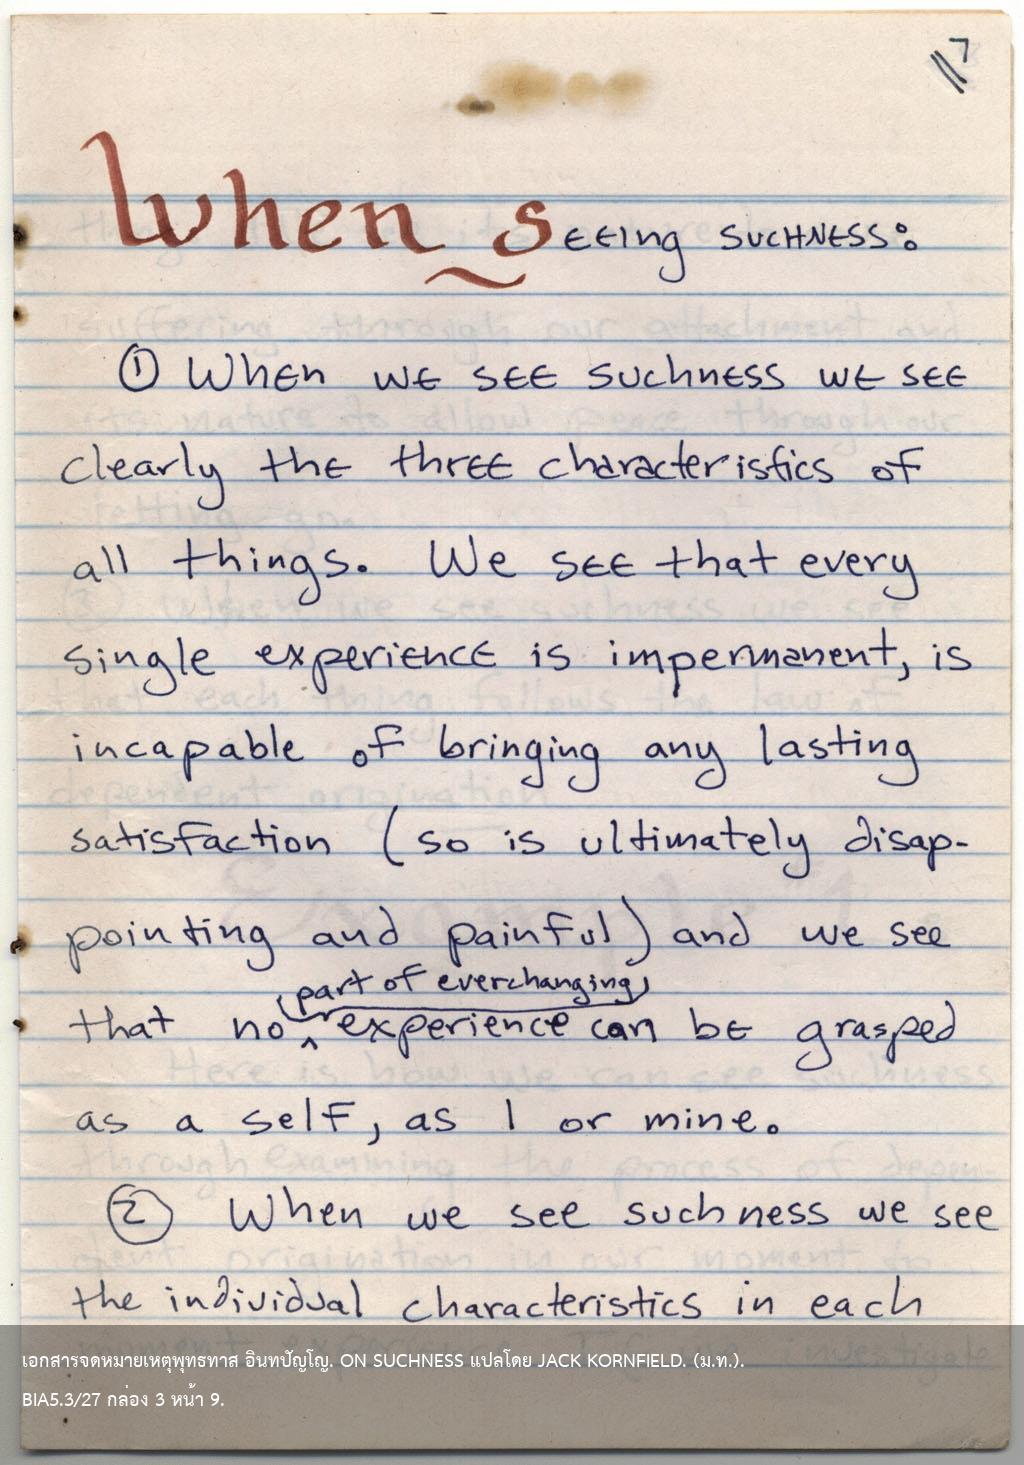 7
When seeing suchness:
① When we see suchness we see
clearly the three characteristics of
all things. We see that every
single experience is impermanent, is
incapable of bringing any lasting
satisfaction (so is ultimately disap-
pointing and painful) and we see
(part of everchanging)
that no ^ experience can be grasped
as a self, as I or mine.
② When we see suchness we see
the individual characteristics in each
เอกสารจดหมายเหตุพุทธทาส อินทปัญโญ. ON SUCHNESS แปลโดย JACK KORNFIELD. (ม.ท.).
BIA5.3/27 กล่อง 3 หน้า 9.